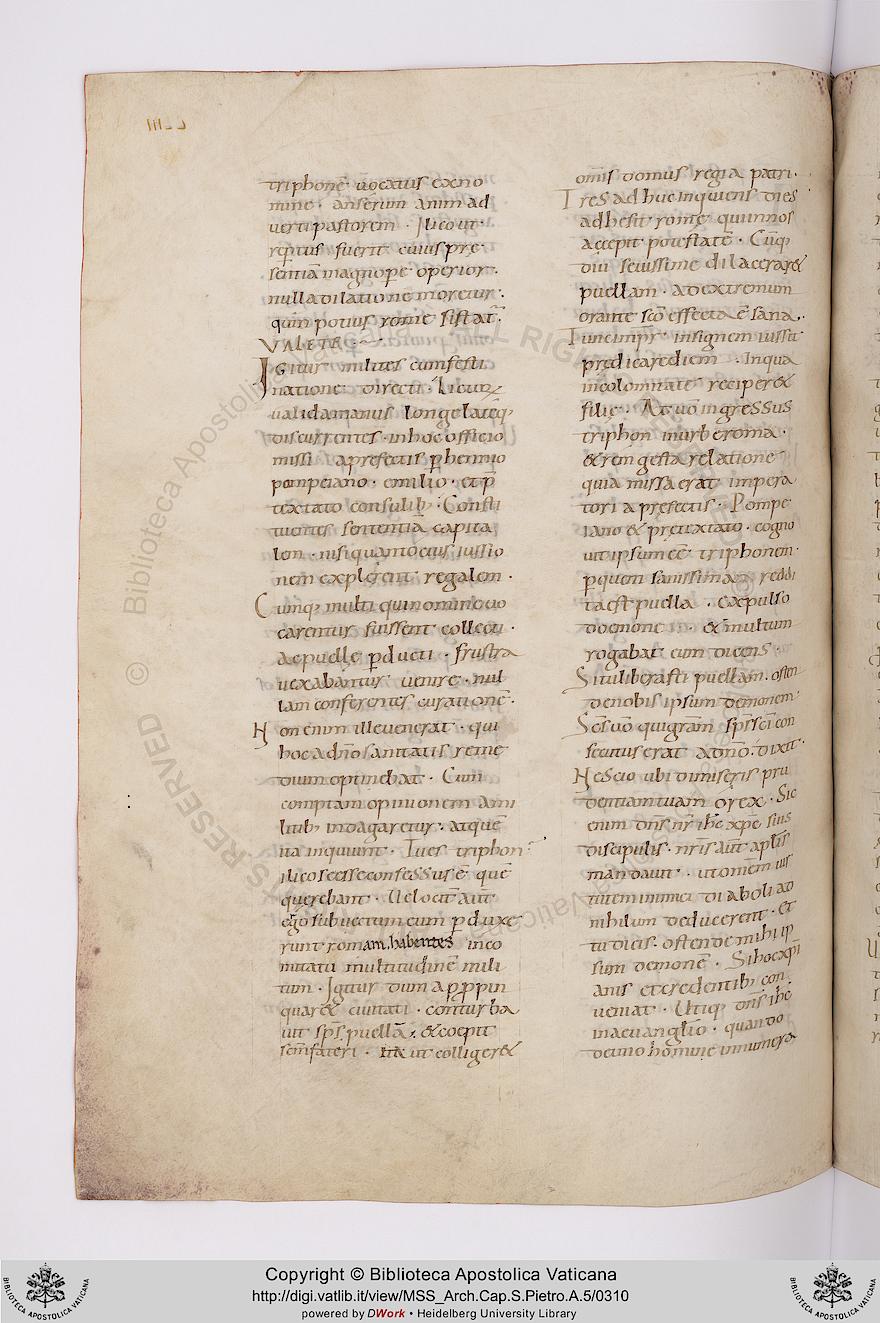 triphonē uocatus ex no
mine · anserum animad
uerti pastorem · Ilico ut
reptus fuerit cuius prę
sentiā magnopere operior ·
nulla dilatione moretur ·
quin potius romę sistat̄ ·
VALETE
Igitur milites cum festi
natione directi · licet
ualida manus longe lateq;
discurrentes · in hoc officio
missi a prefectis perhennio
pompeiano · emilio · et p
textato consulib; · Consti
tuentes sententiā capita
lem · nisi quantocius iussio
nem explerent regalem ·
Cumq; multi qui nomine uo
carentur fuissent collecti ·
ac puellę perducti · frustra
uexabantur uenire · nul
lam conferentes curationē ·
Non enim ille uenerat · qui
hoc a dn̄o sanitatis reme
dium optinebat · Cum
comptam opinionem a mi
litib; indagaretur · atque
ita inquiunt · Tu es triphon
ilico se esse confessus ē quē
querebant · Uelocit̄ aut̄
ego subuectum eum perduxe
runt romam habentes inco
mitatu multitudinē mili
tum · Igitur dum appropin
quaret ciuitati · conturba
uit sp̄s puellā · & coepit
sem̄ fateri · ut colliger&
omis domus regia patri ·
Tres adhuc inquiens dies
adhesit romę qui in nos
accepit potestatē · Cūq;
diu seuissime dilacerar&
puellam · ad extremum
orante sc̄o effecta ē sana ·
Tunc impr̄ insignem iussit
predicare diem · In qua
incolomitatē reciper&
filię · At uō ingressus
triphon in urbe roma ·
& rem gesta relatione
quia missa erat impera
tori a prefectis · Pompe
iano & pretextato · cogno
uit ipsum eē triphonem ·
per quem sanissima reddi
ta est puella · expulso
doemone · & multum
rogabat eum dicens ·
Si tu liberasti puellam · osten
de nobis ipsum demonem ·
Sc̄s uō qui gram̄ sp̄s sc̄i con
secutus erat a dn̄o · dixit ·
Nescio ubi dimiseris pru
dentiam tuam o rex · Sic
enim dn̄s nr̄ ih̄c xp̄c suis
discipulis · nr̄is aut̄ apl̄is
mandauit · ut omnēm uir
tutem inimici diaboli ad
nihilum deducerent · et
tu dicis · ostende mihi ip
sum demonē · Si hoc xp̄i
anis et credentib; con
ueniat · Utiq; dn̄s ih̄c
in aeuanglio · quando
de uno homine innumera
Copyright © Biblioteca Apostolica Vaticana
http://digi.vatlib.it/view/MSS_Arch.Cap.S.Pietro.A.5/0310
powered by DWork • Heidelberg University Library